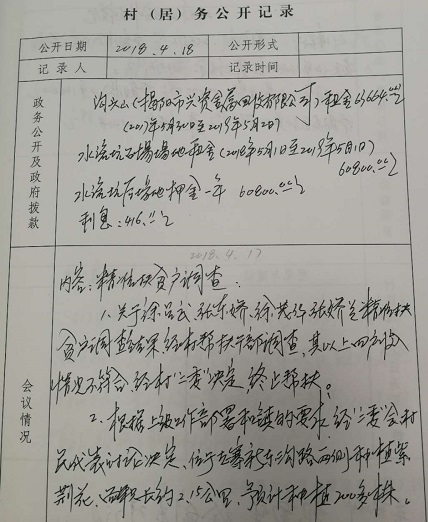 村（居）务公开记录
公开日期 2018.4.18 公开形式
记录人 记录时间
政务公开及政府拨款
(揭阳市兴资金属回收有限公司)租金63664.00元
(2017年5月30日至2018年5月2日)
水流坑石场场地租金(2018年5月1日至2019年5月1日)
60800.00元
水流坑石场地押金一年 60800.00元
利息:416.00元
会议情况
2018.4.17
内容:精准扶贫户调查:
1、关于徐 张东娇、徐 张娇兰精准扶
贫户调查结果,经村帮扶干部调查,其以上四户收入
情况不符合,经村“二委”决定,终止帮扶。
2、根据上级工作部署和 的要求,经“二委”会村
民代表讨论决定,位于 路两侧种植紫
荆花,面积长约2.15公里,预计种植200多株。